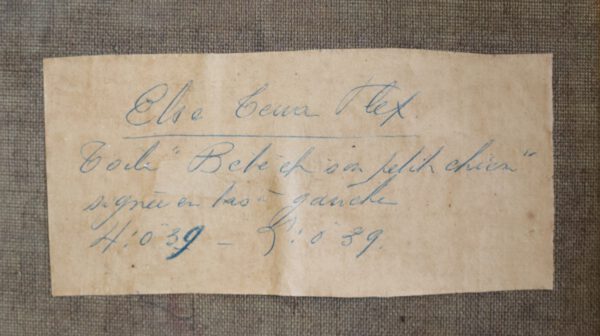 Else
Toile "Bébé et son petit chien"
signée en bas à gauche
H: 0.39 - L: 0.39.